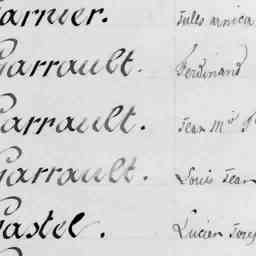 arnier. Jules
Garrault. Ferdinand
Garrault. Jean M
Garrault. Louis Jean
Gastel. Lucien